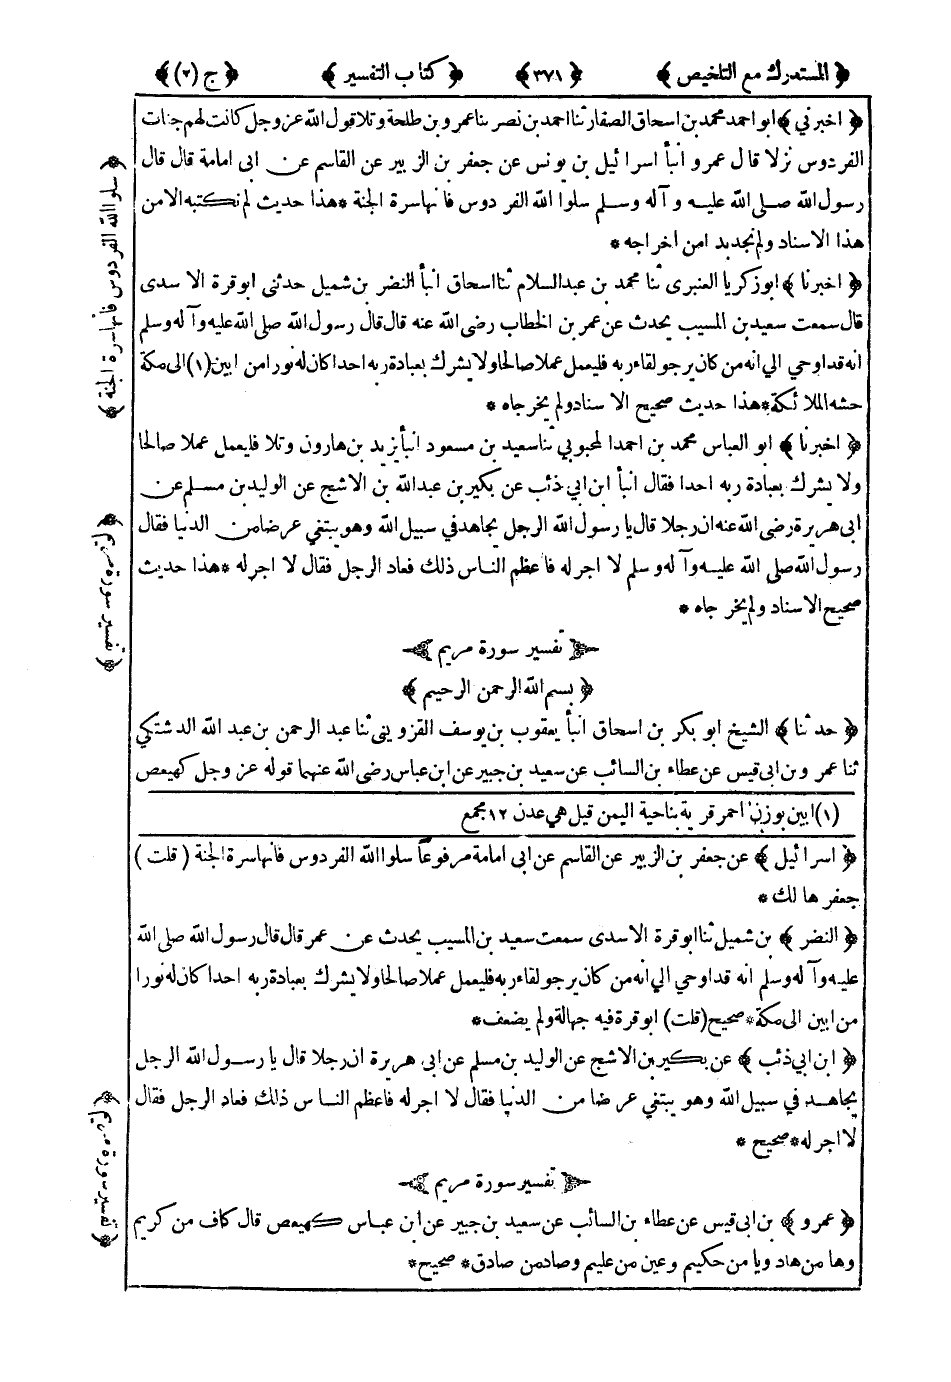 ﴿ المستدرك مع التلخيص ﴾ ﴿ ٣٧١ ﴾ ﴿ كتاب التفسير ﴾ ﴿ ج (٢) ﴾
﴿ اخبرني ﴾ ابو احمد محمد بن اسحاق الصفار ثنا احمد بن نصر ثنا عمرو بن طلحة وتلا قول الله عز وجل كانت لهم جنات
الفردوس نزلا قال عمرو انبأ اسرائيل بن يونس عن جعفر بن الزبير عن القاسم عن ابى امامة قال قال
رسول الله صلى الله عليه وآله وسلم سلوا الله الفردوس فانها سرة الجنة * هذا حديث لم نكتبه الا من
هذا الاسناد ولم نجد بدا من اخراجه *
﴿ اخبرنا ﴾ ابو زكريا العنبرى ثنا محمد بن عبد السلام ثنا اسحاق انبأ النضر بن شميل حدثنى ابو قرة الاسدى
قال سمعت سعيد بن المسيب يحدث عن عمر بن الخطاب رضى الله عنه قال قال رسول الله صلى الله عليه وآله وسلم
انه قد اوحي الي انه من كان يرجو لقاء ربه فليعمل عملا صالحا ولا يشرك بعبادة ربه احدا كان له نورا من ابين (١) الى مكة
حشه الملائكة * هذا حديث صحيح الاسناد ولم يخرجاه *
﴿ اخبرنا ﴾ ابو العباس محمد بن احمد المحبوبي ثنا سعيد بن مسعود انبأ يزيد بن هارون وتلا فليعمل عملا صالحا
ولا يشرك بعبادة ربه احدا فقال انبأ ابن ابي ذئب عن بكير بن عبد الله بن الاشج عن الوليد بن مسلم عن
ابى هريرة رضى الله عنه ان رجلا قال يا رسول الله الرجل يجاهد في سبيل الله وهو يبتغي عرضا من الدنيا فقال
رسول الله صلى الله عليه وآله وسلم لا اجر له فاعظم الناس ذلك فعاد الرجل فقال لا اجر له * هذا حديث
صحيح الاسناد ولم يخرجاه *
تفسير سورة مريم
﴿ بسم الله الرحمن الرحيم ﴾
﴿ حدثنا ﴾ الشيخ ابو بكر بن اسحاق انبأ يعقوب بن يوسف القزوينى ثنا عبد الرحمن بن عبد الله الدشتكي
ثنا عمرو بن ابى قيس عن عطاء بن السائب عن سعيد بن جبير عن ابن عباس رضى الله عنهما قوله عز وجل كهيعص
(١) ابين بوزن احمر قرية بناحية اليمن قيل هي عدن ١٢ مجمع
﴿ اسرائيل ﴾ عن جعفر بن الزبير عن القاسم عن ابى امامة مرفوعاً سلوا الله الفردوس فانها سرة الجنة ( قلت )
جعفر هالك *
﴿ النضر ﴾ بن شميل ثنا ابو قرة الاسدى سمعت سعيد بن المسيب يحدث عن عمر قال قال رسول الله صلى الله
عليه وآله وسلم انه قد اوحي الي انه من كان يرجو لقاء ربه فليعمل عملا صالحا ولا يشرك بعبادة ربه احدا كان له نورا
من ابين الى مكة * صحيح (قلت) ابو قرة فيه جهالة ولم يضعف *
﴿ ابن ابي ذئب ﴾ عن بكير بن الاشج عن الوليد بن مسلم عن ابى هريرة ان رجلا قال يا رسول الله الرجل
يجاهد في سبيل الله وهو يبتغي عرضا من الدنيا فقال لا اجر له فاعظم الناس ذلك فعاد الرجل فقال
لا اجر له * صحيح *
تفسير سورة مريم
﴿ عمرو ﴾ بن ابى قيس عن عطاء بن السائب عن سعيد بن جبير عن ابن عباس كهيعص قال كاف من كريم
وها من هاد ويا من حكيم وعين من عليم وصاد من صادق * صحيح *
﴿ سلوا الله الفردوس فانها سرة الجنة ﴾
﴿ تفسير سورة مريم ﴾
﴿ تفسير سورة مريم ﴾